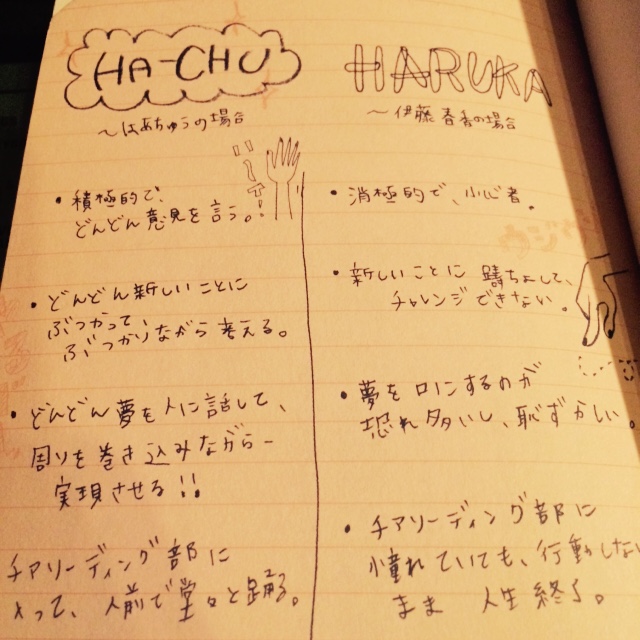 HA-CHU
〜はあちゅうの場合
・積極的で、
どんどん意見を言う。
・どんどん新しいことに
ぶつかって、
ぶつかりながら考える。
・どんどん夢を人に話して、
周りを巻き込みながら
実現させる!!
チアリーディング部に
入って、人前で堂々と踊る。
HARUKA
〜伊藤春香の場合
・消極的で、小心者。
・新しいことに躊ちょして、
チャレンジできない。
・夢を口にするのが
恐れ多いし、恥ずかしい。
・チアリーディング部に
憧れていても、行動しない
まま 人生終了。